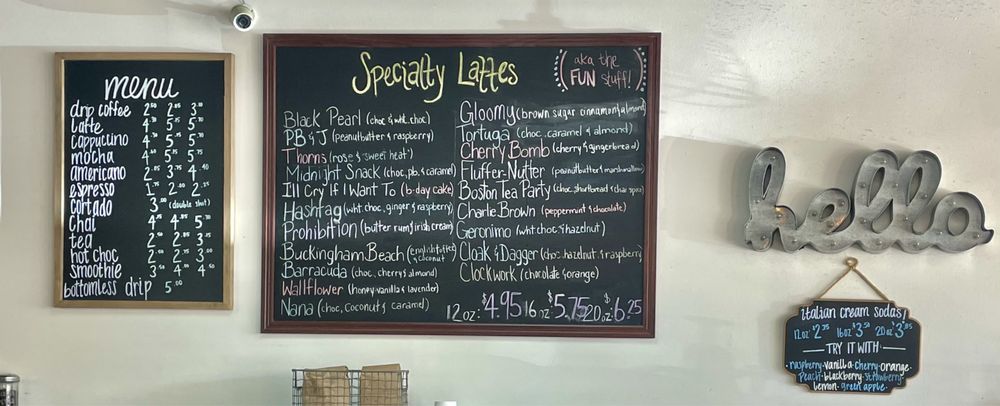 menu
drip coffee 2.50 2.85 3.10
latte
cappuccino
mocha
americano
espresso
cortado (double shot)
chai
tea
hot choc
smoothie
bottomless drip 5.00
Specialty Lattes
(aka the
FUN stuff!)
Black Pearl (choc & wht. choc)
PB & J (peanutbutter & raspberry)
Thorns (rose & sweet heat)
Midnight Snack (choc, pb, & caramel)
I'll Cry If I Want To (b-day cake)
Hashtag (wht choc, ginger & raspberry)
Prohibition (butter rum & irish cream)
Buckingham Beach (english toffee & coconut)
Barracuda (choc, cherry & almond)
Wallflower (honey vanilla & lavender)
Nana (choc, coconut & caramel)
Gloomy (brown sugar cinnamon & almond)
Tortuga (choc. caramel & almond)
Cherry Bomb (cherry & gingerbread)
Fluffer-Nutter (peanutbutter & marshmallow)
Boston Tea Party (choc, shortbread & chai spice)
Charlie Brown (peppermint & chocolate)
Geronimo (wht choc & hazelnut)
Cloak & Dagger (choc. hazelnut & raspberry)
Clockwork (chocolate & orange)
12oz: $4.95 16oz: $5.75 20oz: $6.25
hello
italian cream sodas!
12oz $2.75 16oz $3.50 20oz $3.85
TRY IT WITH
raspberry · vanilla · cherry · orange
Peach · blackberry · strawberry
lemon · green apple